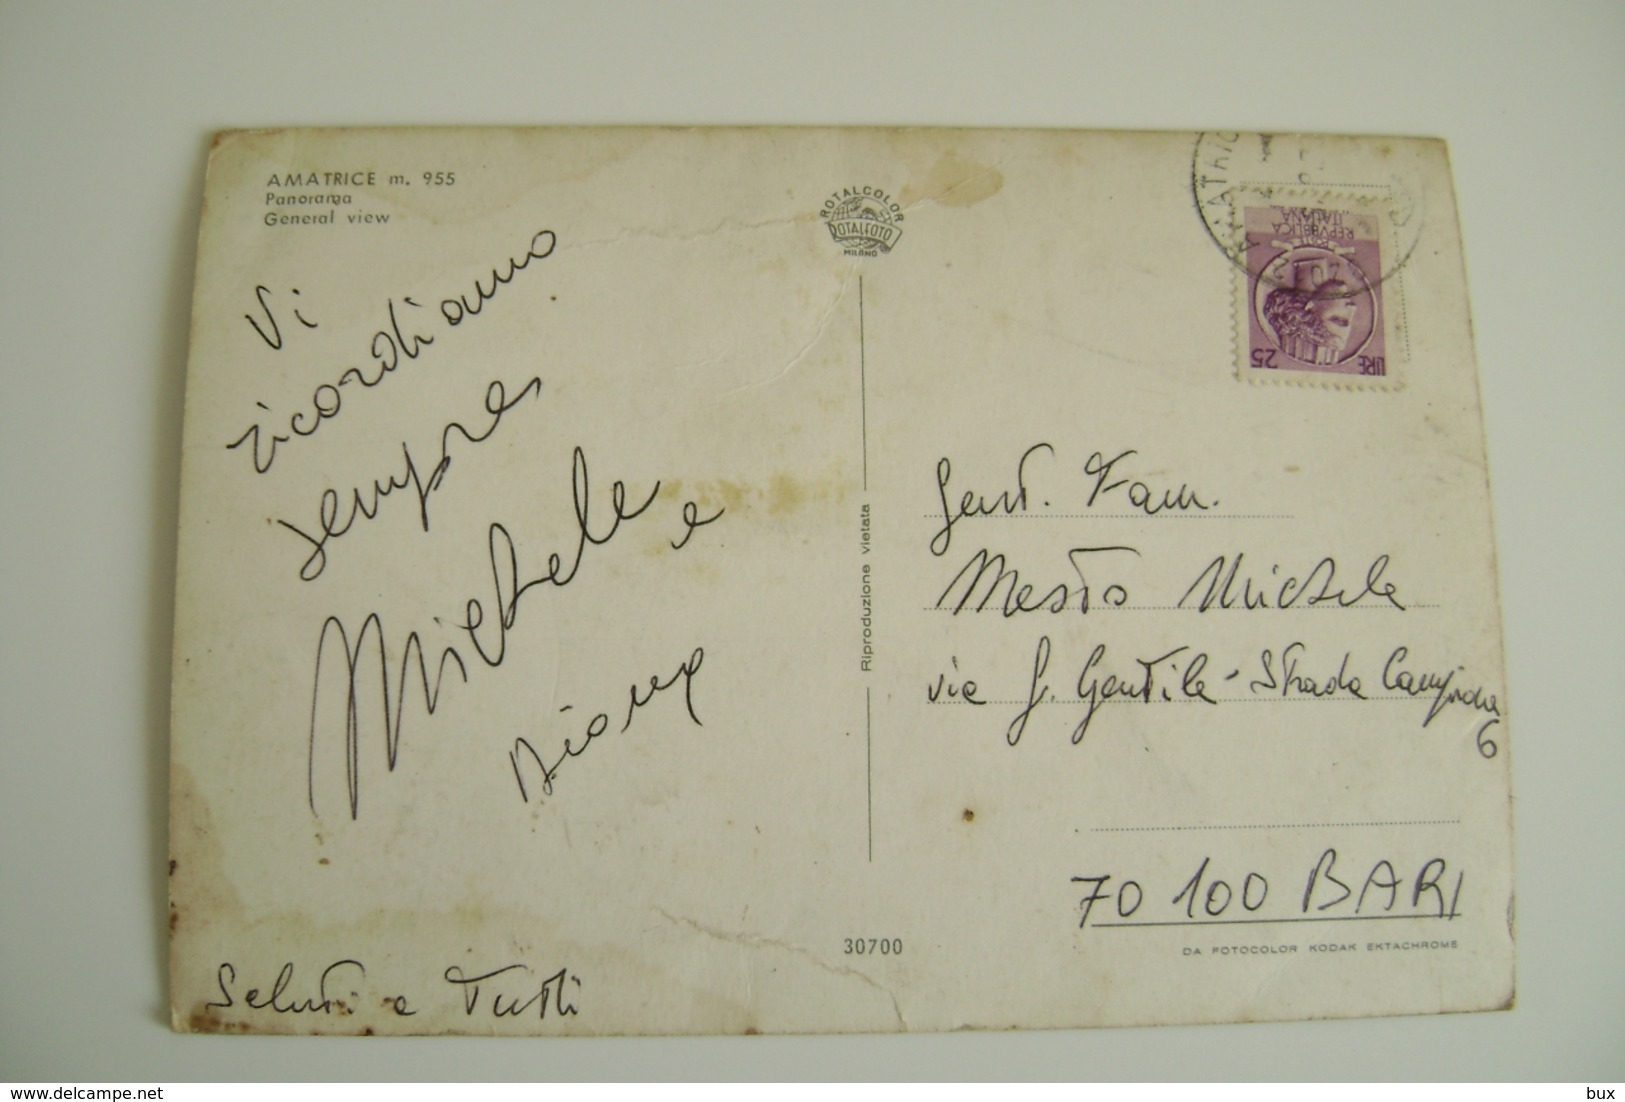 AMATRICE m. 955
Panorama
General view
Vi
ricordiamo
sempre
Michele
e
Saluti a Tutti
ROTALCOLOR
ROTALFOTO
MILANO
Riproduzione vietata
30700
REPVBBLICA
ITALIANA
POSTE
LIRE 25
Gent. Fam.
Mesto Michele
via G. Gentile - Strada
6
70100 BARI
DA FOTOCOLOR KODAK EKTACHROME
bux